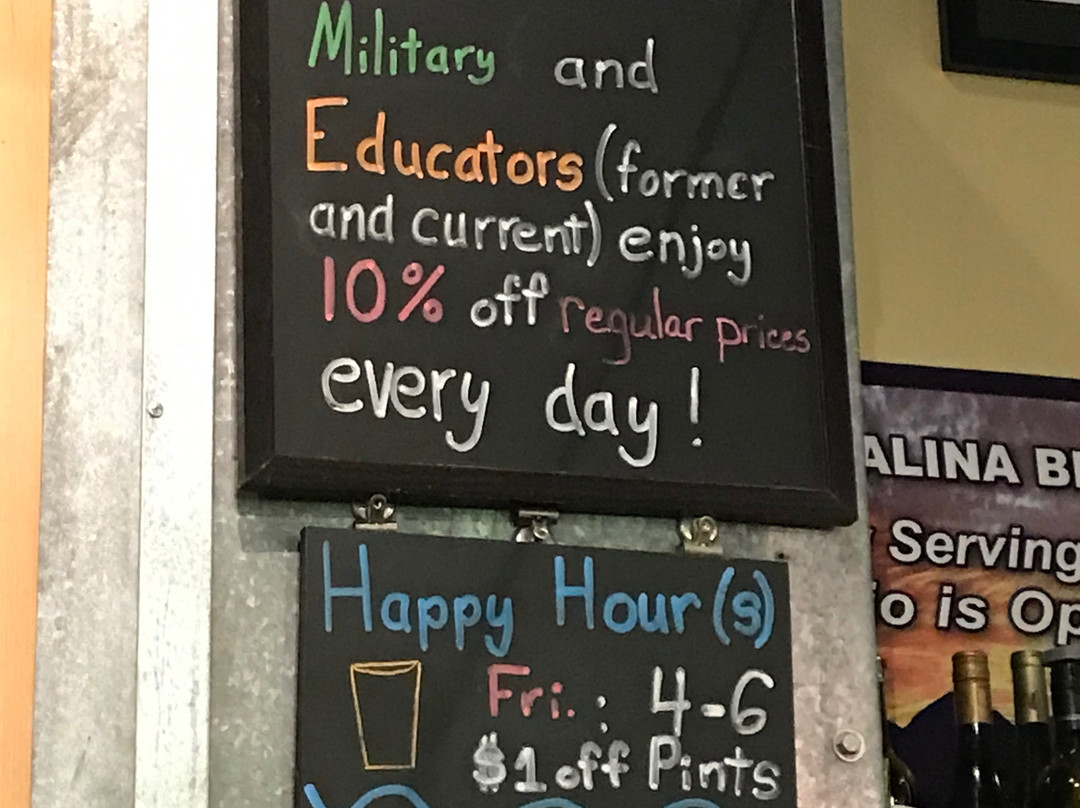 Military and
Educators (former
and current) enjoy
10% off regular prices
every day!
Happy Hour(s)
Fri.: 4-6
$1 off Pints
ALINA B
Serving
o is Op